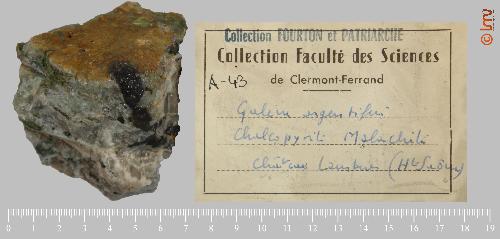 Collection FOURTON et PATRIARCHE
Collection Faculté des Sciences
de Clermont-Ferrand
A-43
Galène argentifère
Chalcopyrite Malachite
(Hte Saône)
LMV
0 1 2 3 4 5 6 7 8 9 10 11 12 13 14 15 16 17 18 19